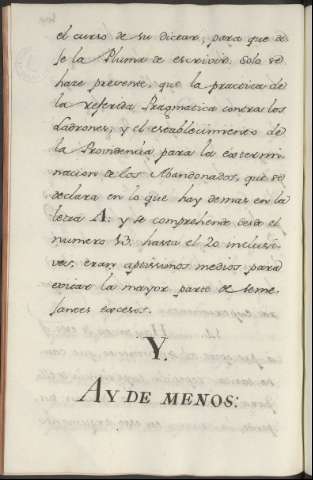 el curso de su dictar, para que de
se la Pluma de escrivir. Solo se
hace presente, que la practica de
la referida Pragmatica contra los
Ladrones, y el establecimiento de
la Providencia para la extermi
nacion de los Abandonados, que se
declara en lo que hay de mas en la
letra A; y se comprehende desde el
numero 13. hasta el 20 inclusi
ves, eran aptissimos medios para
evitar la mayor parte de seme
jantes excesos.
Y.
AY DE MENOS: